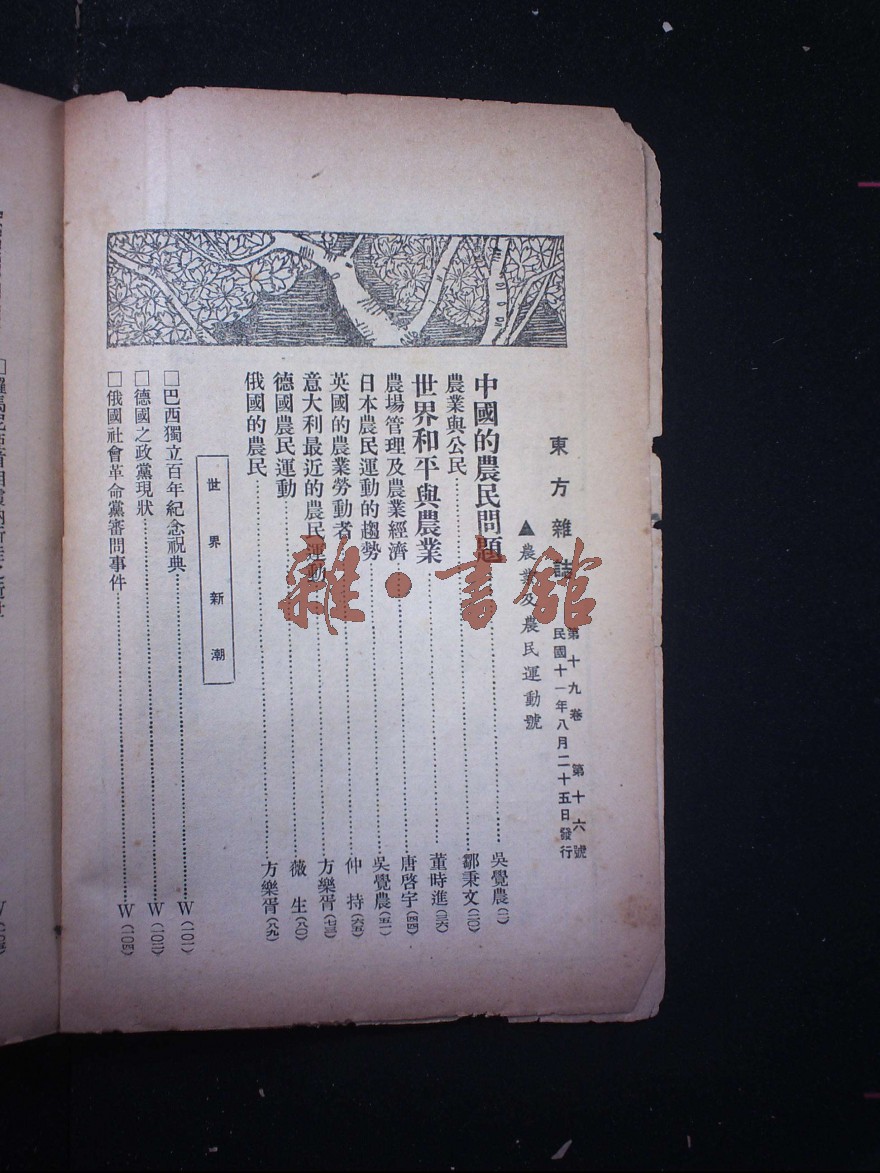 東方雜誌 第十九卷 第十六號
民國十一年八月二十五日發行
▲農業及農民運動號
中國的農民問題 吳覺農(二)
農業與公民 鄒秉文(二〇)
世界和平與農業 董時進(三六)
農場管理及農業經濟 唐啓宇(四四)
日本農民運動的趨勢 吳覺農(五一)
英國的農業勞動者 仲持(六五)
意大利最近的農民運動 方樂胥(七三)
德國農民運動 薇生(八〇)
俄國的農民 方樂胥(八九)
世界新潮
□巴西獨立百年紀念祝典 W(一〇一)
□德國之政黨現狀 W(一〇二)
□俄國社會革命黨審問事件 W(一〇四)
雜·書館